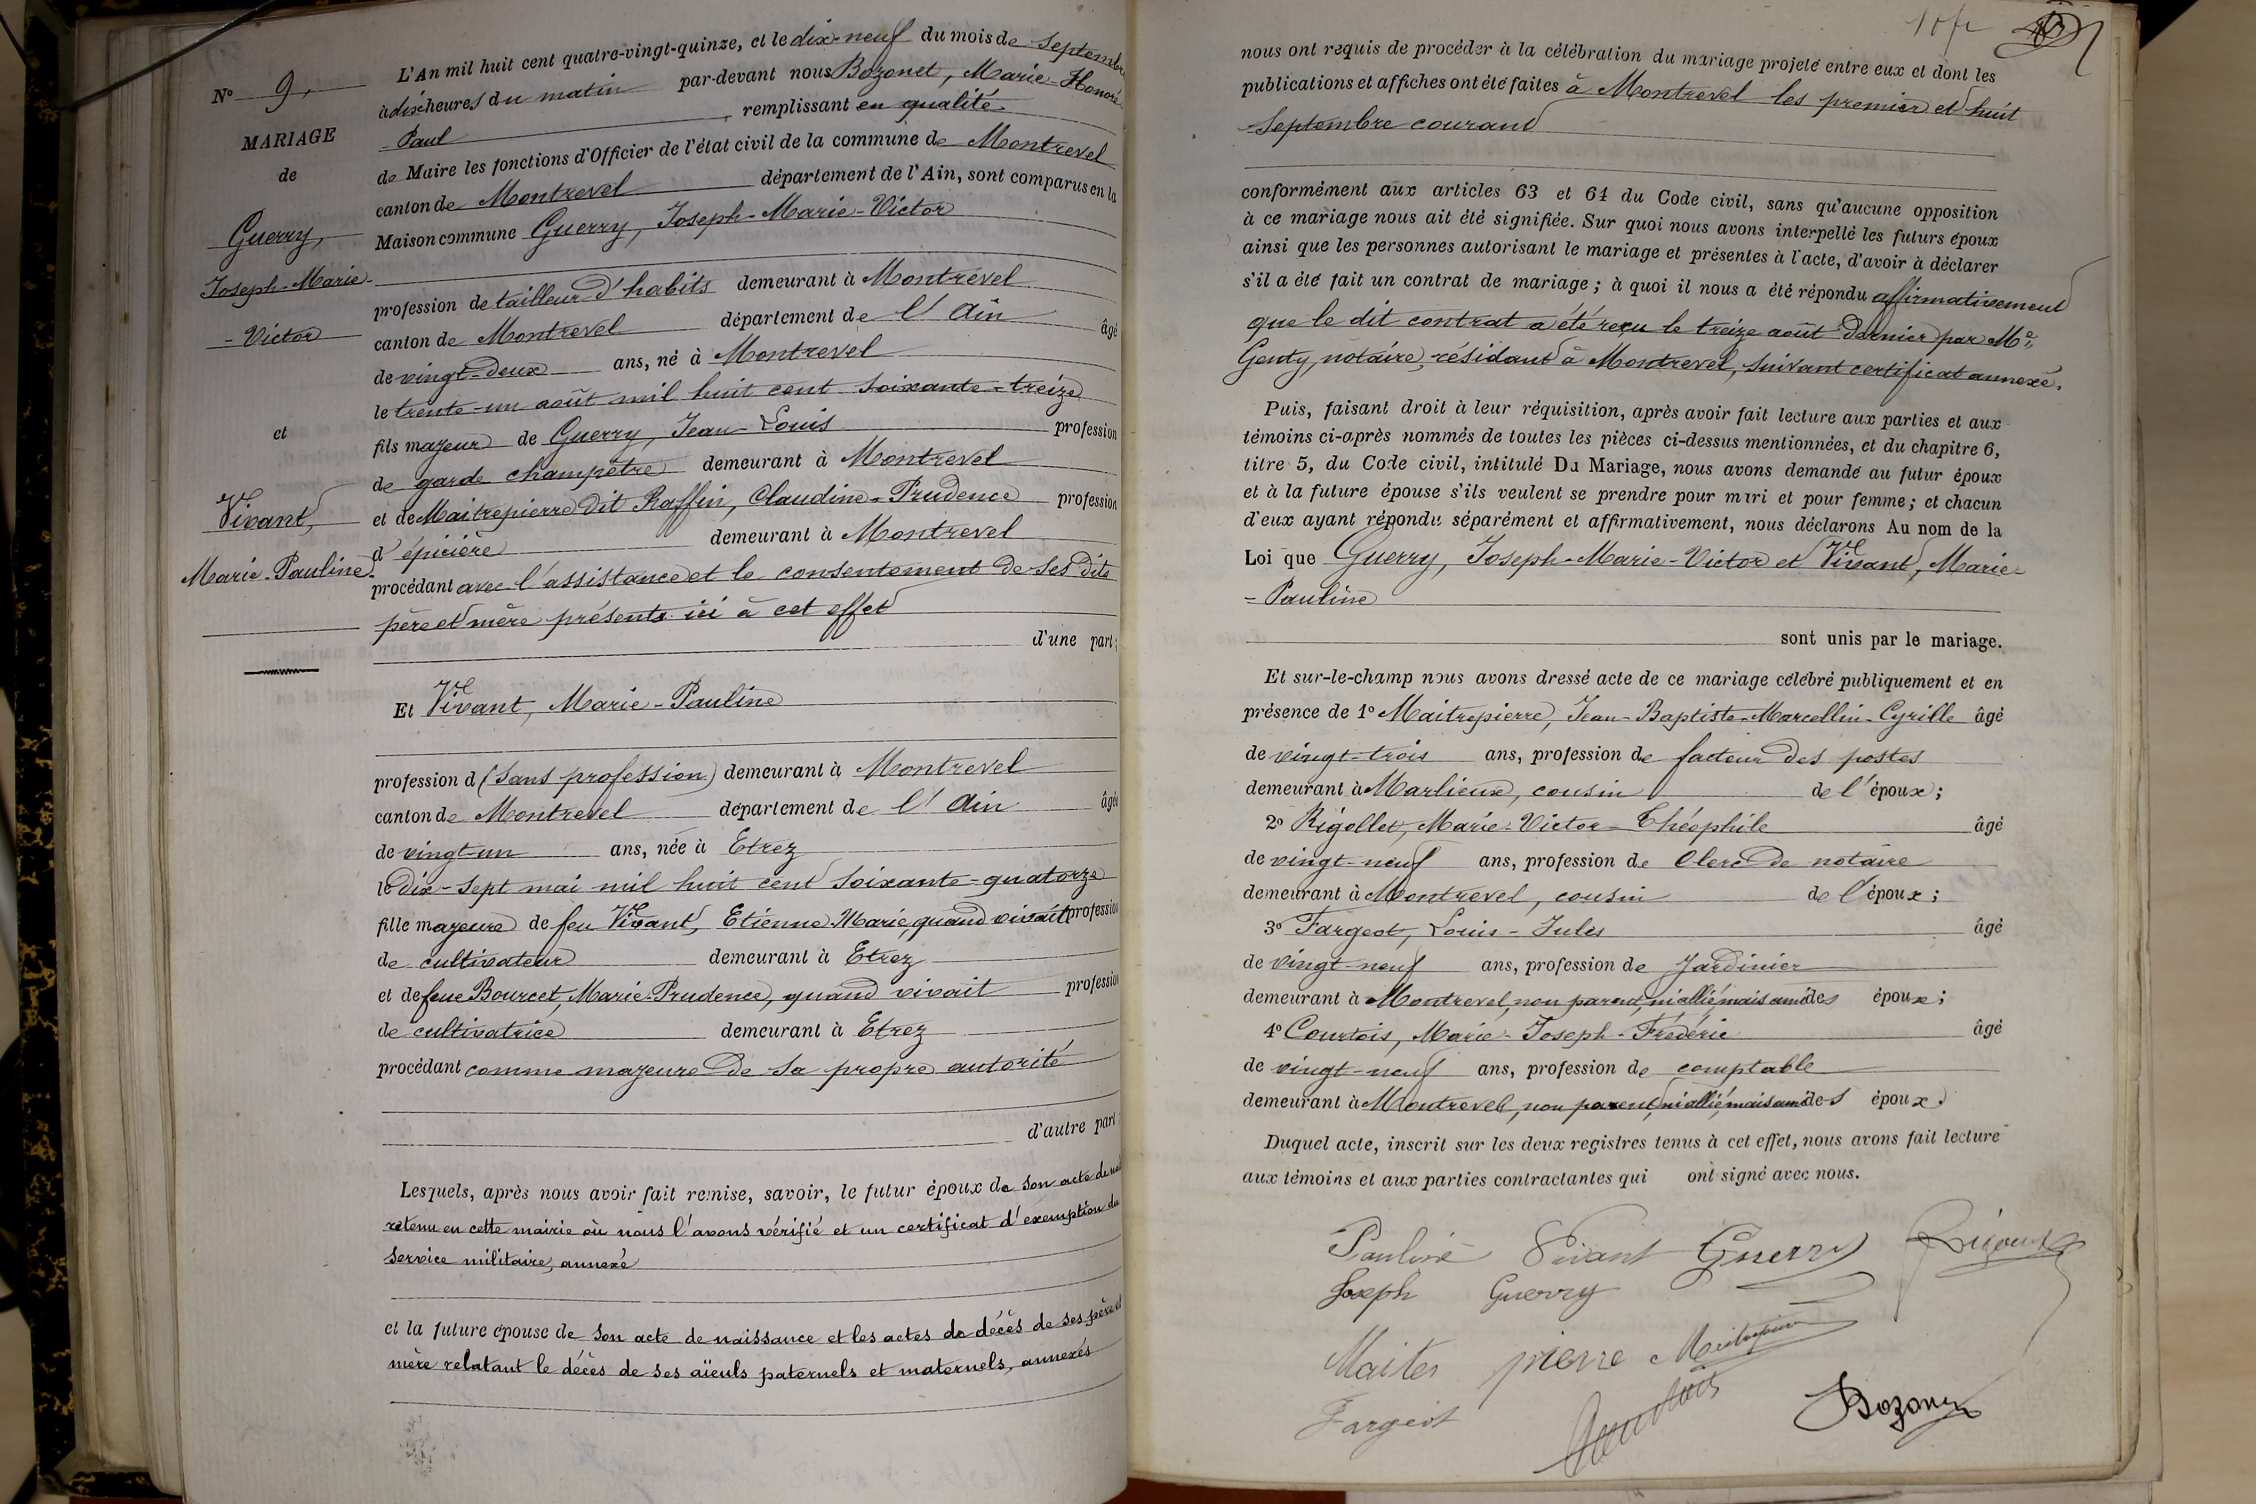 N° 9.
MARIAGE
de
Guerry,
Joseph-Marie-
-Victor
et
Vivant,
Marie-Pauline
L'An mil huit cent quatre-vingt-quinze, et le dix-neuf du mois de Septembre
à dix heures du matin par-devant nous Bozonet, Marie-Honoré-
-Paul, remplissant en qualité
de Maire les fonctions d'Officier de l'état civil de la commune de Montrevel
canton de Montrevel département de l'Ain, sont comparus en la
Maison commune Guerry, Joseph-Marie-Victor
profession de tailleur d'habits demeurant à Montrevel
canton de Montrevel département de l'Ain âgé
de vingt-deux ans, né à Montrevel
le trente-un août mil huit cent soixante-treize
fils majeur de Guerry, Jean-Louis profession
de garde champêtre demeurant à Montrevel
et de Maitrepierre dit Raffin, Claudine-Prudence profession
d'épicière demeurant à Montrevel
procédant avec l'assistance et le consentement de ses dits
père et mère présents ici à cet effet
d'une part;
Et Vivant, Marie-Pauline
profession d (sans profession) demeurant à Montrevel
canton de Montrevel département de l'Ain âgée
de vingt-un ans, née à Etrez
le dix-sept mai mil huit cent soixante-quatorze
fille majeure de feu Vivant, Etienne-Marie, quand vivait profession
de cultivateur demeurant à Etrez
et de feue Bourcet, Marie-Prudence, quand vivait profession
de cultivatrice demeurant à Etrez
procédant comme majeure de sa propre autorité
d'autre part
Lesquels, après nous avoir fait remise, savoir, le futur époux de son acte de
retenu en cette mairie où nous l'avons vérifié et un certificat d'exemption du
service militaire, annexé
et la future épouse de son acte de naissance et les actes de décès de ses père et
mère relatant le décès de ses aïeuls paternels et maternels, annexés
nous ont requis de procéder à la célébration du mariage projeté entre eux et dont les
publications et affiches ont été faites à Montrevel les premier et huit
Septembre courant
conformément aux articles 63 et 64 du Code civil, sans qu'aucune opposition
à ce mariage nous ait été signifiée. Sur quoi nous avons interpellé les futurs époux
ainsi que les personnes autorisant le mariage et présentes à l'acte, d'avoir à déclarer
s'il a été fait un contrat de mariage; à quoi il nous a été répondu affirmativement
que le dit contrat a été reçu le treize août dernier par Me
Genty, notaire, résidant à Montrevel, suivant certificat annexé.
Puis, faisant droit à leur réquisition, après avoir fait lecture aux parties et aux
témoins ci-après nommés de toutes les pièces ci-dessus mentionnées, et du chapitre 6,
titre 5, du Code civil, intitulé Du Mariage, nous avons demandé au futur époux
et à la future épouse s'ils veulent se prendre pour mari et pour femme; et chacun
d'eux ayant répondu séparément et affirmativement, nous déclarons Au nom de la
Loi que Guerry, Joseph-Marie-Victor et Vivant, Marie-
-Pauline
sont unis par le mariage.
Et sur-le-champ nous avons dressé acte de ce mariage célébré publiquement et en
présence de 1° Maitrepierre, Jean-Baptiste-Marcellin-Cyrille âgé
de vingt-trois ans, profession de facteur des postes
demeurant à Marlieux, cousin de l'époux;
2° Rigollet, Marie-Victor-Théophile âgé
de vingt-neuf ans, profession de Clerc de notaire
demeurant à Montrevel, cousin de l'époux;
3° Fargeot, Louis-Jules âgé
de vingt-neuf ans, profession de Jardinier
demeurant à Montrevel, non parent, ni allié, mais ami des époux;
4° Courtois, Marie-Joseph-Frédéric âgé
de vingt-neuf ans, profession de comptable
demeurant à Montrevel, non parent, ni allié, mais ami des époux.
Duquel acte, inscrit sur les deux registres tenus à cet effet, nous avons fait lecture
aux témoins et aux parties contractantes qui ont signé avec nous.
Pauline Vivant Guerry
Joseph Guerry
Maiter pierre Maitrepierre
Fargeot Courtois Bozonet